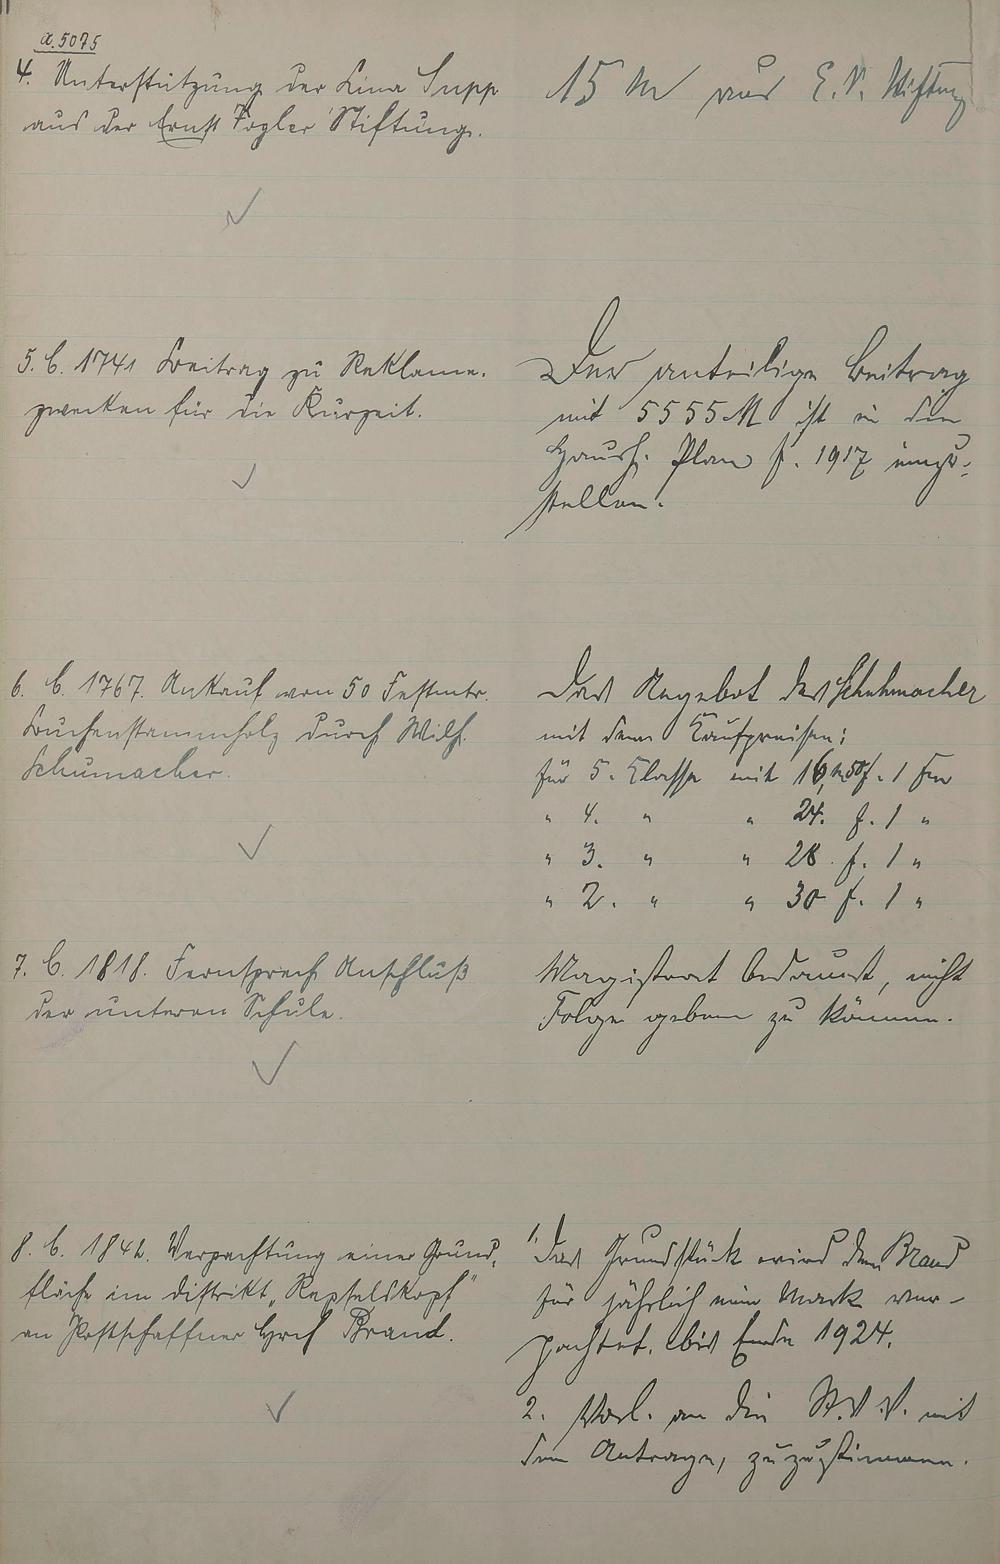 a. 5075
4. Unterstützung der Lina Supp
aus der Ernst Vogler Stiftung.
15 M aus E. V. Stiftung
5. C. 1741 Beitrag zu Reklame-
zwecken für die Kurzeit.
Der anteilige Beitrag
mit 5555 M ist in den
Haush. Plan f. 1917 einzu-
stellen.
6. C. 1767. Ankauf von 50 Festmtr.
Buchenstammholz durch Wilh.
Schumacher.
Das Angebot des Schuhmacher
mit den Kaufpreisen:
für 5. Classe mit 16, M 50 f. 1 Fm
" 4. " " 24. f. 1 "
" 3. " " 28. f. 1 "
" 2. " " 30 f. 1 "
7. C. 1818. Fernsprech Anschluß
der unteren Schule.
Magistrat bedauert, nicht
Folge geben zu können.
8. C. 1842. Verpachtung einer Grund-
fläche im Distrikt
an Postschaffner Hrch Brand.
1. Das Grundstück wird dem Brand
für jährlich eine Mark ver-
pachtet. bis Ende 1924.
2. Vorl. an die St.V.V. mit
dem Antrage, zuzustimmen.